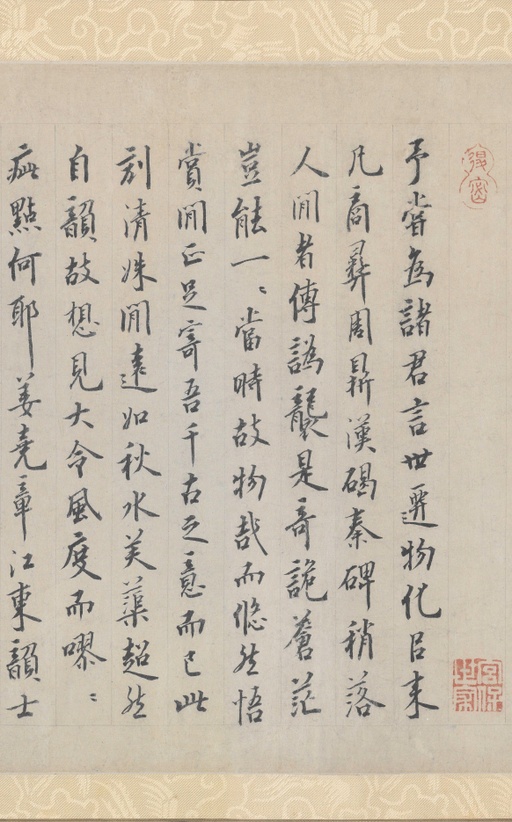 予嘗為諸君言世遷物化㠯来
凡商彝周鼎漢碣秦碑稍落
人間者傳譌襲是奇詭蒼茫
豈能一〻當時故物哉而倐然悟
賞間正足寄吾千古之意而已此
刻清姝閒遠如秋水美蕖超然
自韻故想見大令風度而嘐〻
疵點何耶姜堯章江東韻士